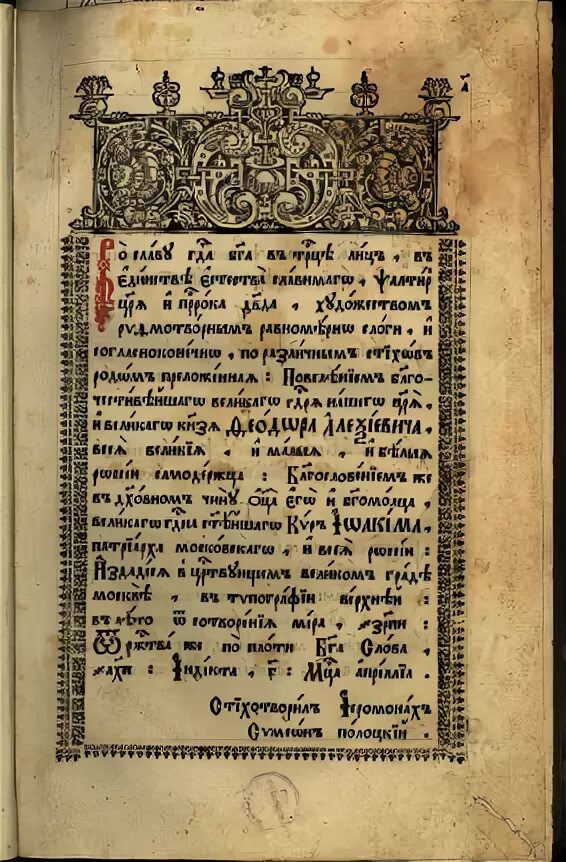 Во славу гдⷭ҇а бг҃а въ трⷪ҇цѣ лицъ , въ
є҆ди́нствѣ є҆стества̀ сла́вимагѡ , ѱалти́р
цр҃ѧ̀ и҆ прⷪ҇ро́ка дв҃да , художествомъ
рѵѳмотво́рнымъ равномѣ́рнѡ сло́ги , и҆
согласноконе́чнѡ , по разли́чнымъ стїхѡ́въ
родѡ́мъ преложе́ннаѧ : Повелѣ́нїемъ бл҃го-
чести́вѣйшагѡ вели́кагѡ гдⷭ҇рѧ на́шегѡ цр҃ѧ̀ ,
и҆ вели́кагѡ кн҃зѧ Ѳео́дѡра Алеѯі́евича ,
всеѧ̀ вели́кїѧ , и҆ ма́лыѧ , и҆ бѣ́лыѧ
рѡссі́и самоде́ржца : Бл҃гослове́нїемъ же
въ дх҃о́вномъ чи́нꙋ ѻ҆ц҃а̀ є҆гѡ̀ и҆ бг҃омо́лца ,
вели́кагѡ гдⷭ҇и́на ст҃ѣ́йшагѡ Кѵ́ръ І҆ѡаки́ма ,
патрїа́рха моско́вскагѡ , и҆ всеѧ̀ рѡссі́и :
И҆здадѐсѧ в цр҃ствꙋющемъ вели́комъ гра́дѣ
москвѣ̀ , въ тѵпогра́фїи ве́рхнѣй :
въ лѣ́то ѿ сотворе́нїѧ мі́ра , ҂зрп҃и :
Ѿ рж҃тва́ же по пло́ти Бг҃а Сло́ва ,
҂ахп҃ : І҆ндї́кта , г҃ : Мцⷭ҇а а҆прі́ллїа .
Стїхотвори́лъ І҆еромона́хъ
Сѵмеѡ́нъ по́лоцкїй .